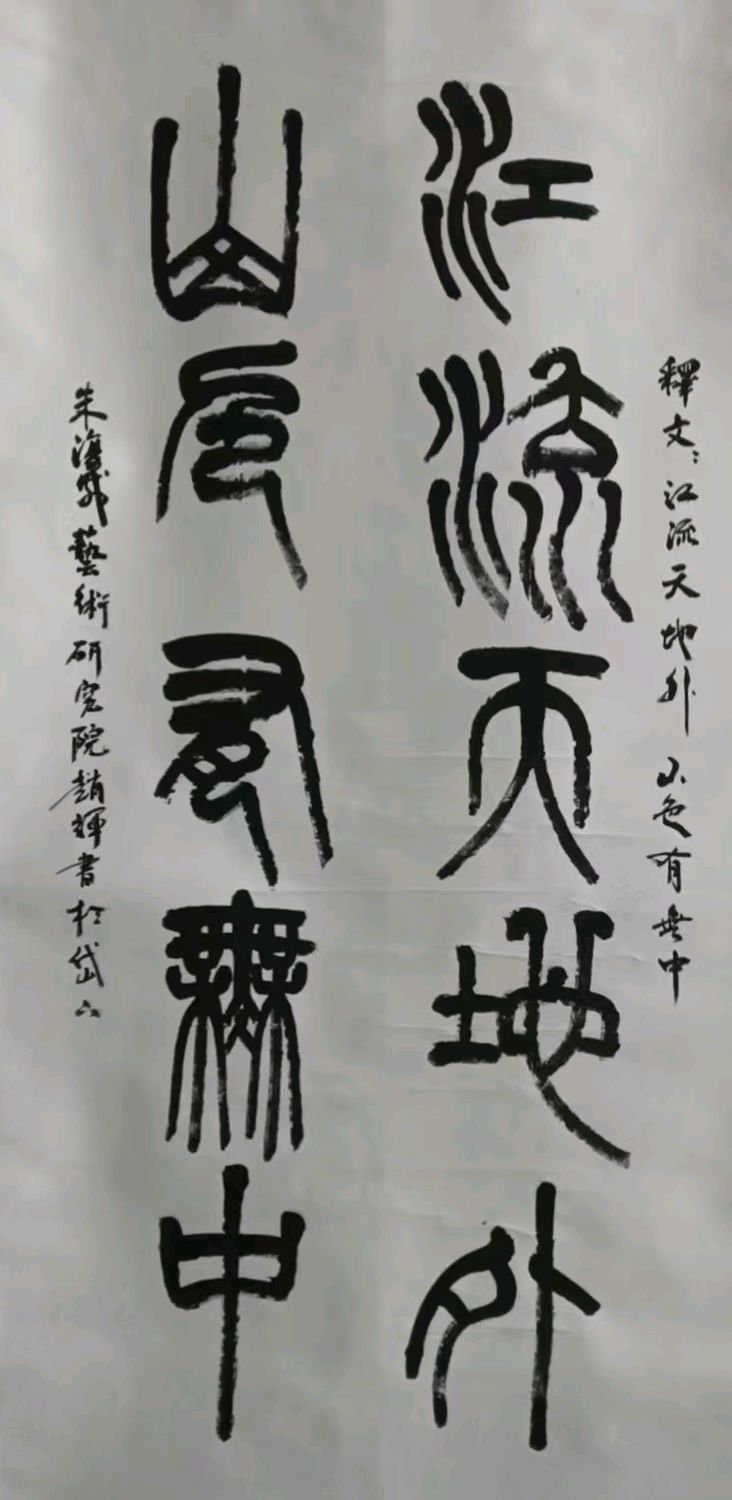 釋文：江流天地外 山色有無中
江流天地外
山色有無中
朱復戡藝術研究院趙輝書於岱下